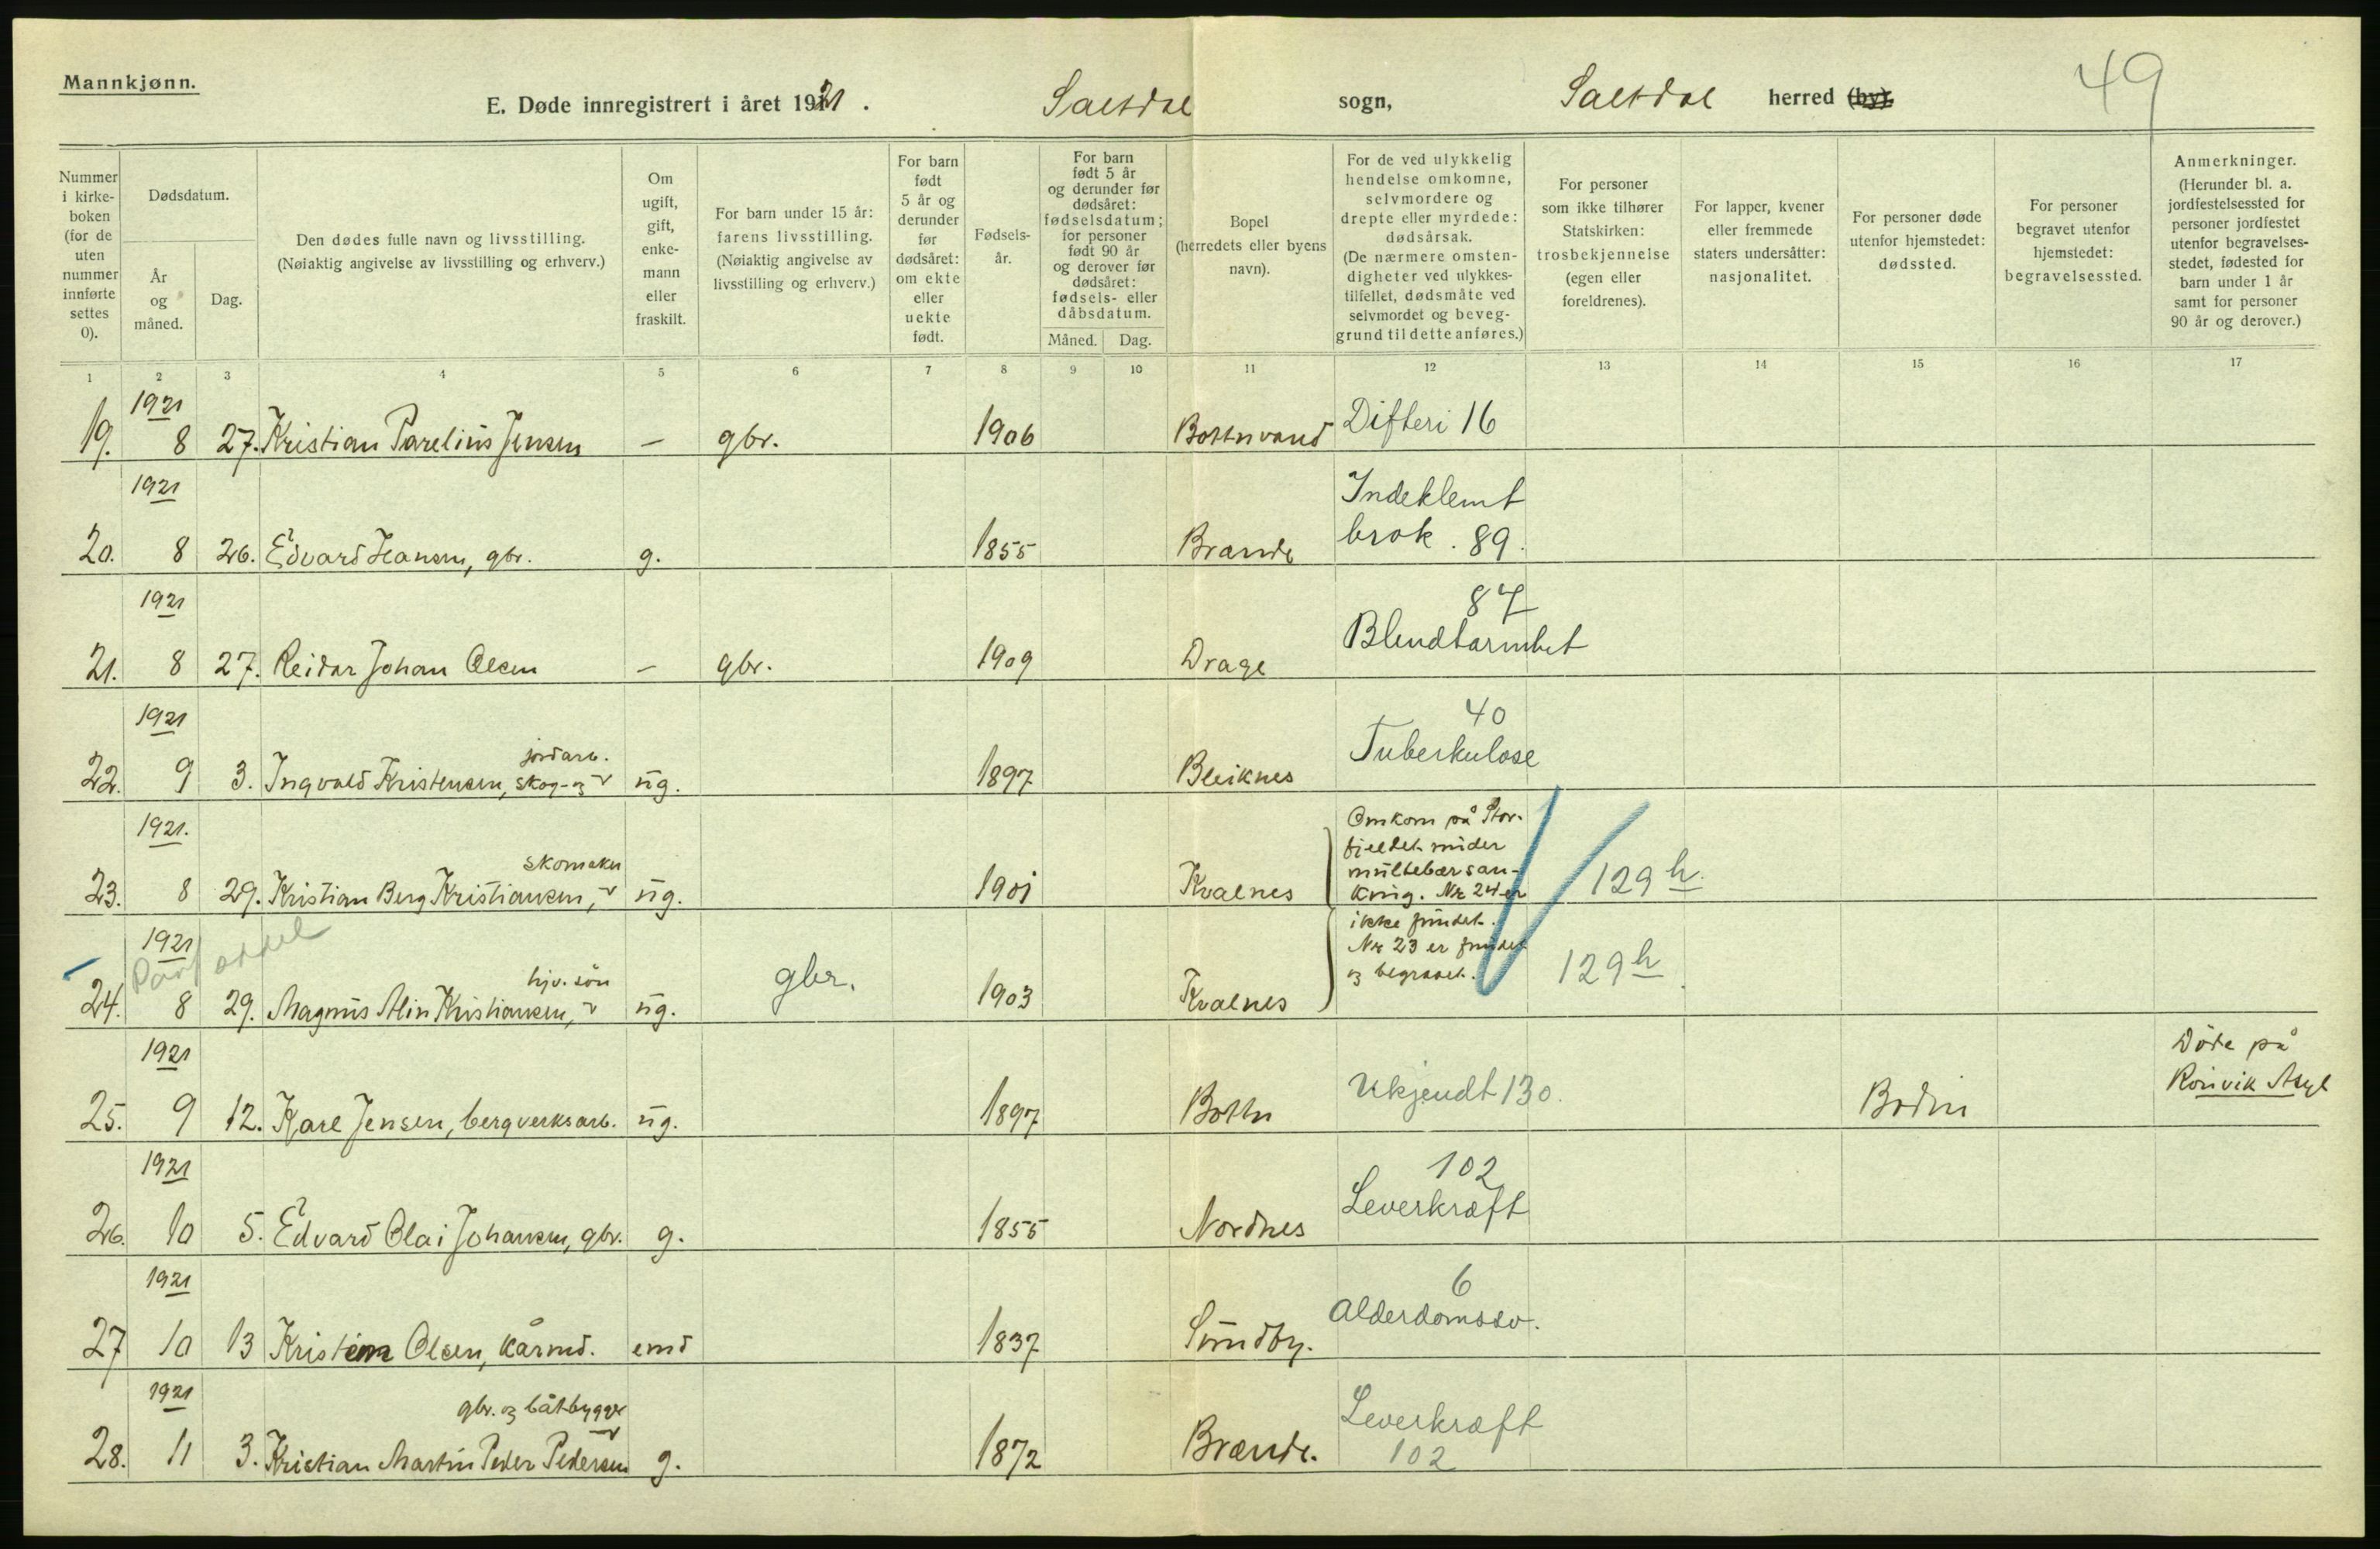 Mannkjønn.
E. Døde innregistrert i året 1921. Saltdal sogn, Saltdal herred (by).
49
Nummer i kirkeboken (for de uten nummer innførte settes 0).
Dødsdatum.
År og måned.
Dag.
Den dødes fulle navn og livsstilling.
(Nøiaktig angivelse av livsstilling og erhverv.)
Om ugift, gift, enkemann eller fraskilt.
For barn under 15 år: farens livsstilling. (Nøiaktig angivelse av livsstilling og erhverv.)
For barn født 5 år og derunder før dødsåret: om ekte eller uekte født.
Fødselsår.
For barn født 5 år og derunder før dødsåret: fødselsdatum; for personer født 90 år og derover før dødsåret: fødsels- eller dåbsdatum.
Måned. Dag.
Bopel (herredets eller byens navn).
For de ved ulykkelig hendelse omkomne, selvmordere og drepte eller myrdede: dødsårsak. (De nærmere omstendigheter ved ulykkestilfellet, dødsmåte ved selvmordet og beveggrund til dette anføres.)
For personer som ikke tilhører Statskirken: trosbekjennelse (egen eller foreldrenes).
For lapper, kvener eller fremmede staters undersåtter: nasjonalitet.
For personer døde utenfor hjemstedet: dødssted.
For personer begravet utenfor hjemstedet: begravelsessted.
Anmerkninger. (Herunder bl. a. jordfestelsessted for personer jordfestet utenfor begravelsesstedet, fødested for barn under 1 år samt for personer 90 år og derover.)
1 2 3 4 5 6 7 8 9 10 11 12 13 14 15 16 17
1921
19. 8 27. Kristian Parelius Jensen – gbr. 1906 Bottnvand Difteri 16
1921
Indeklemt
20. 8 26. Edvard Hansen, gbr. g. 1855 Brænde brok. 89.
1921
87
21. 8 27. Reidar Johan Olsen – gbr. 1909 Drage Blendtarmbet
1921
40
jordarb.
22. 9 3. Ingvald Kristensen, skog- og ug. 1897 Bleiknes Tuberkulose
1921.
skomaker
23. 8 29. Kristian Berg Kristiansen, ug. 1901 Kvalnes
Omkom på Stor-
fjeldet under
multebærsan-
kning. Nr 24 er
ikke fundet.
Nr 23 er fundet
og begravet.
129 h.
1921
hjv. søn
24. 8 29. Magnus Alin Kristiansen, ug. gbr. 1903 Kvalnes 129 h.
1921
Døde på
Rønvik Asyl
25. 9 12. Karl Jensen, bergverksarb. ug. 1897 Bottn Ukjendt 130. Bodin
1921
102
26. 10 5. Edvard Olai Johansen, gbr. g. 1855 Nordnes Leverkræft
1921
6
27 10 13 Kristen Olsen, kårmd. emd 1837 Sundby. Alderdomssv.
1921
gbr. og båtbygger
28. 11 3. Kristian Martin Peder Pedersen g. 1872 Brænde. Leverkræft
102